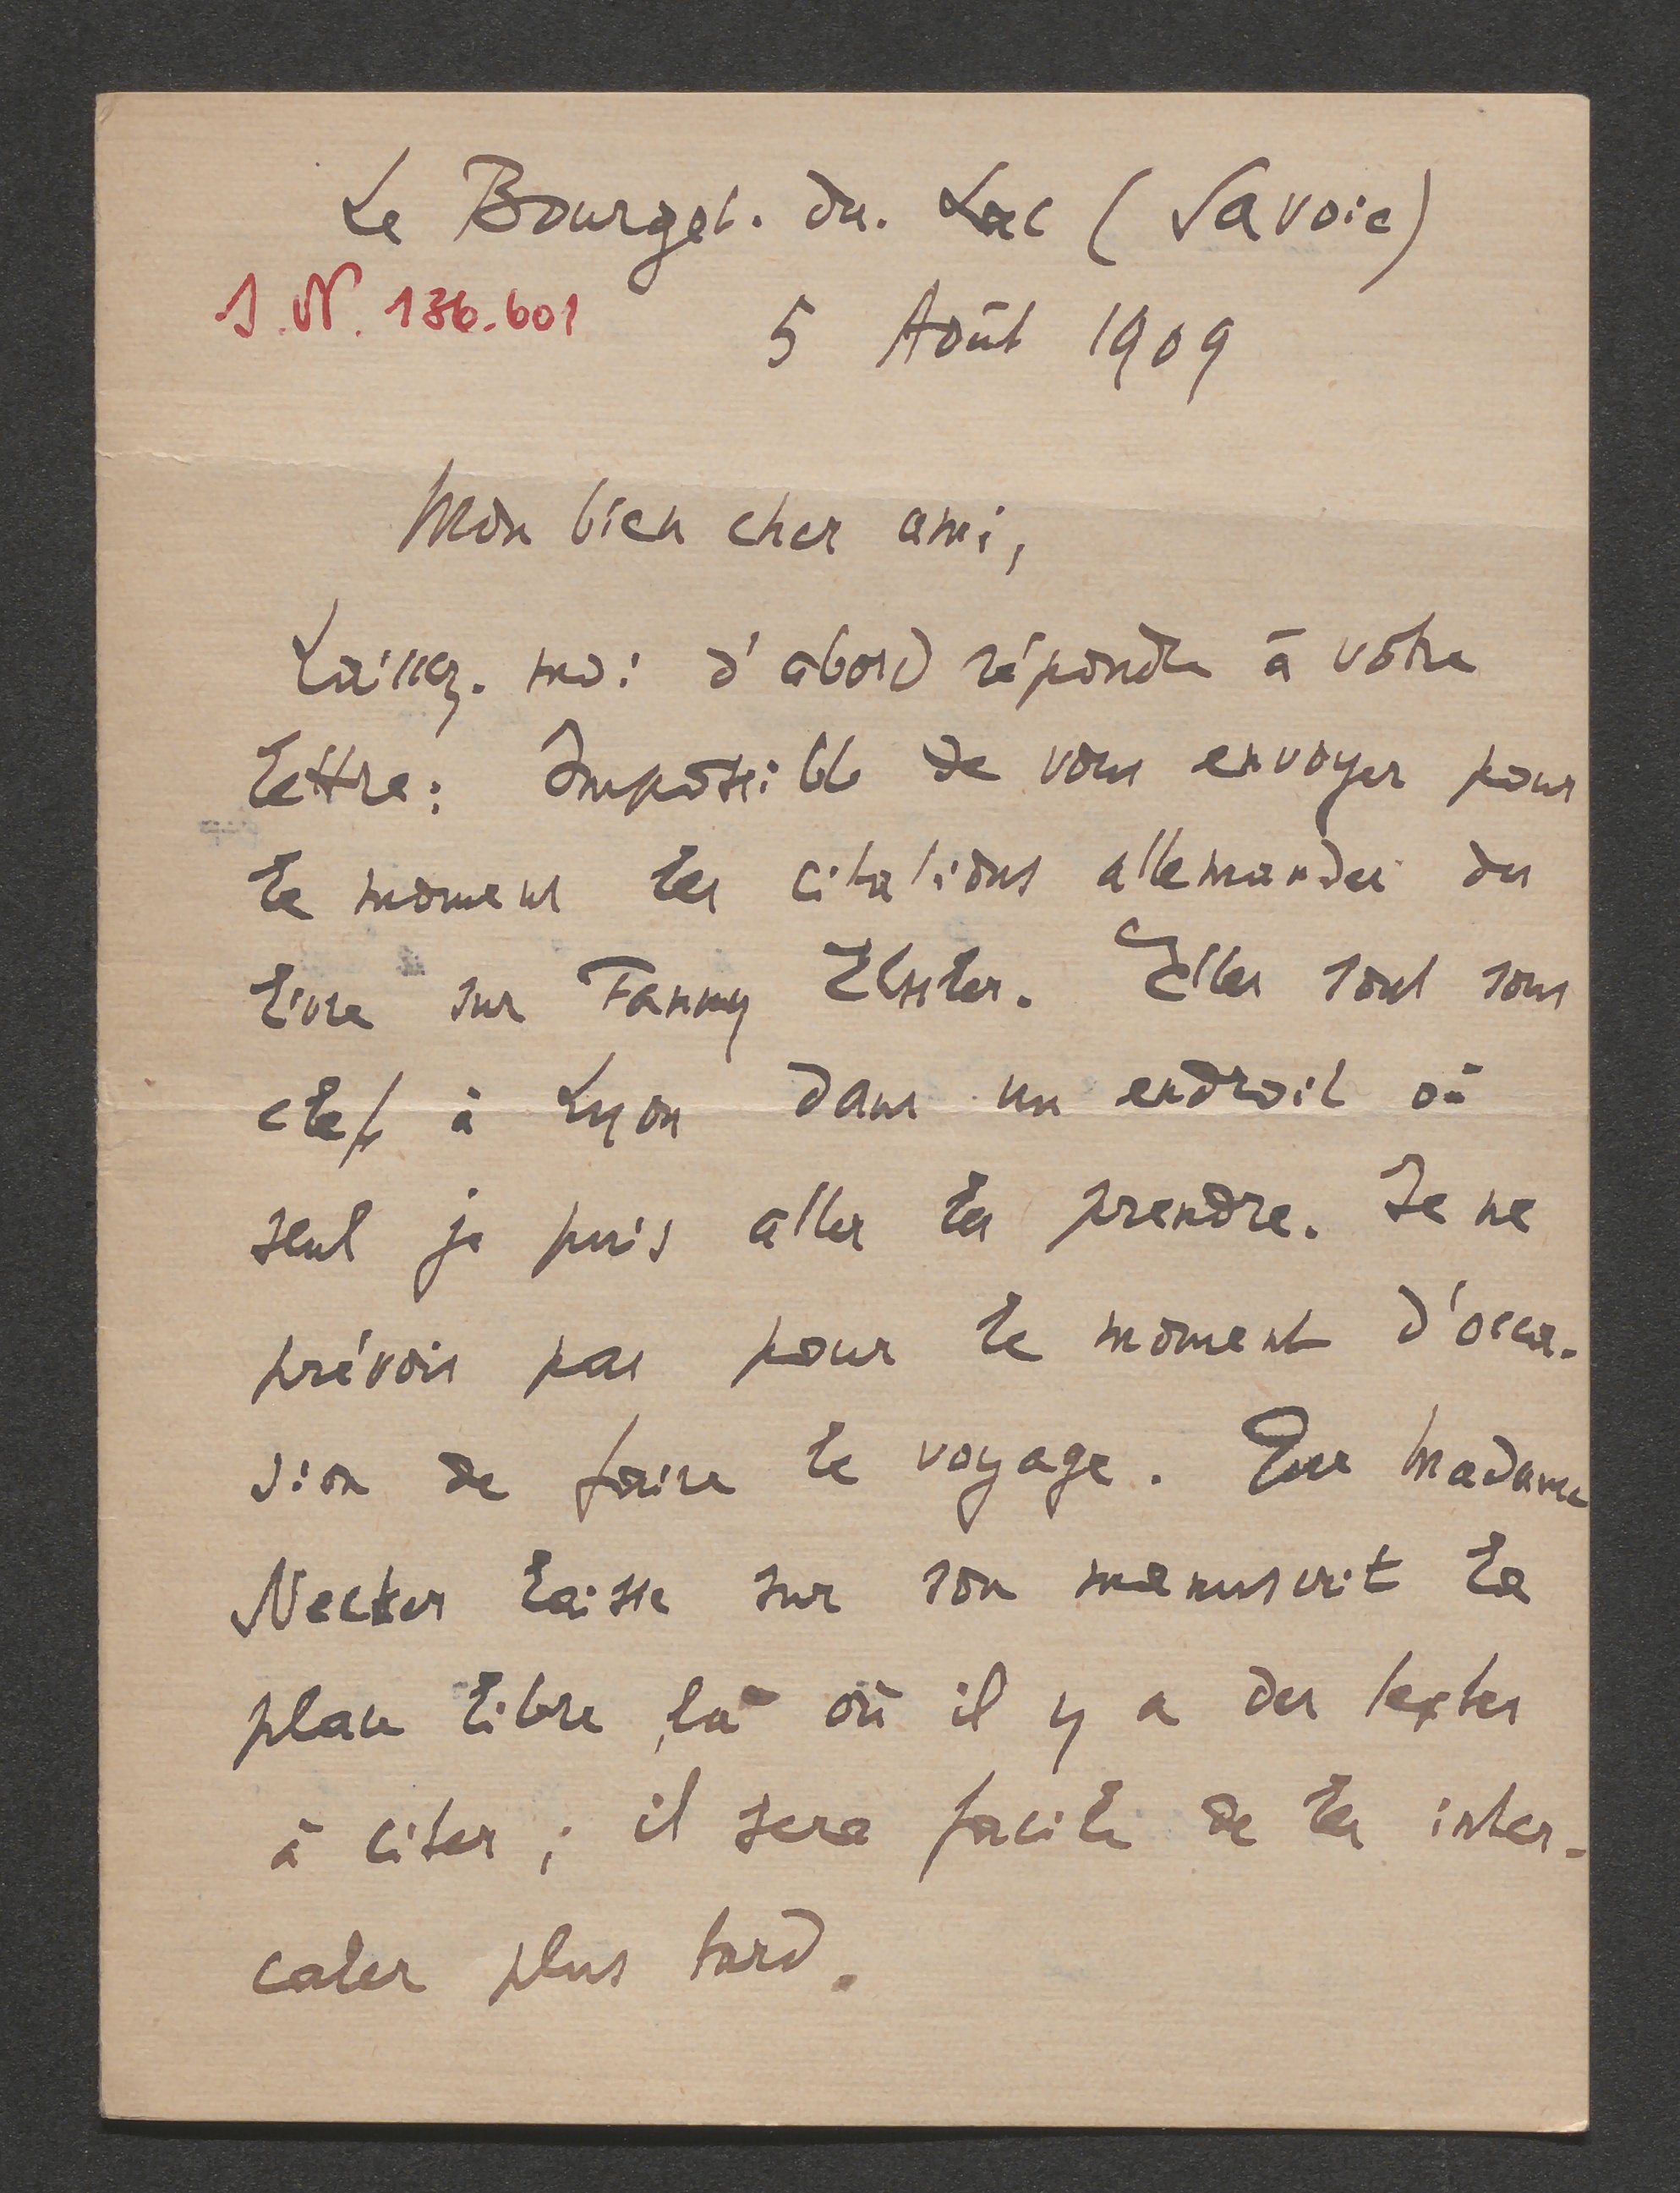 Le Bourget-du-Lac (Savoie)
I.N. 136.601
5 Août 1909
Mon bien cher ami,
Laissez-moi d'abord répondre à votre
lettre: Impossible de vous envoyer pour
le moment les citations allemandes du
livre sur Fanny Elssler. Elles sont sous
clef à Lyon dans un endroit où
seul je puis aller les prendre. Je ne
prévois pas pour le moment d'occa-
sion de faire le voyage. Que Madame
Necker laisse sur son manuscrit la
place libre là où il y a des textes
à citer; il sera facile de les inter-
caler plus tard.